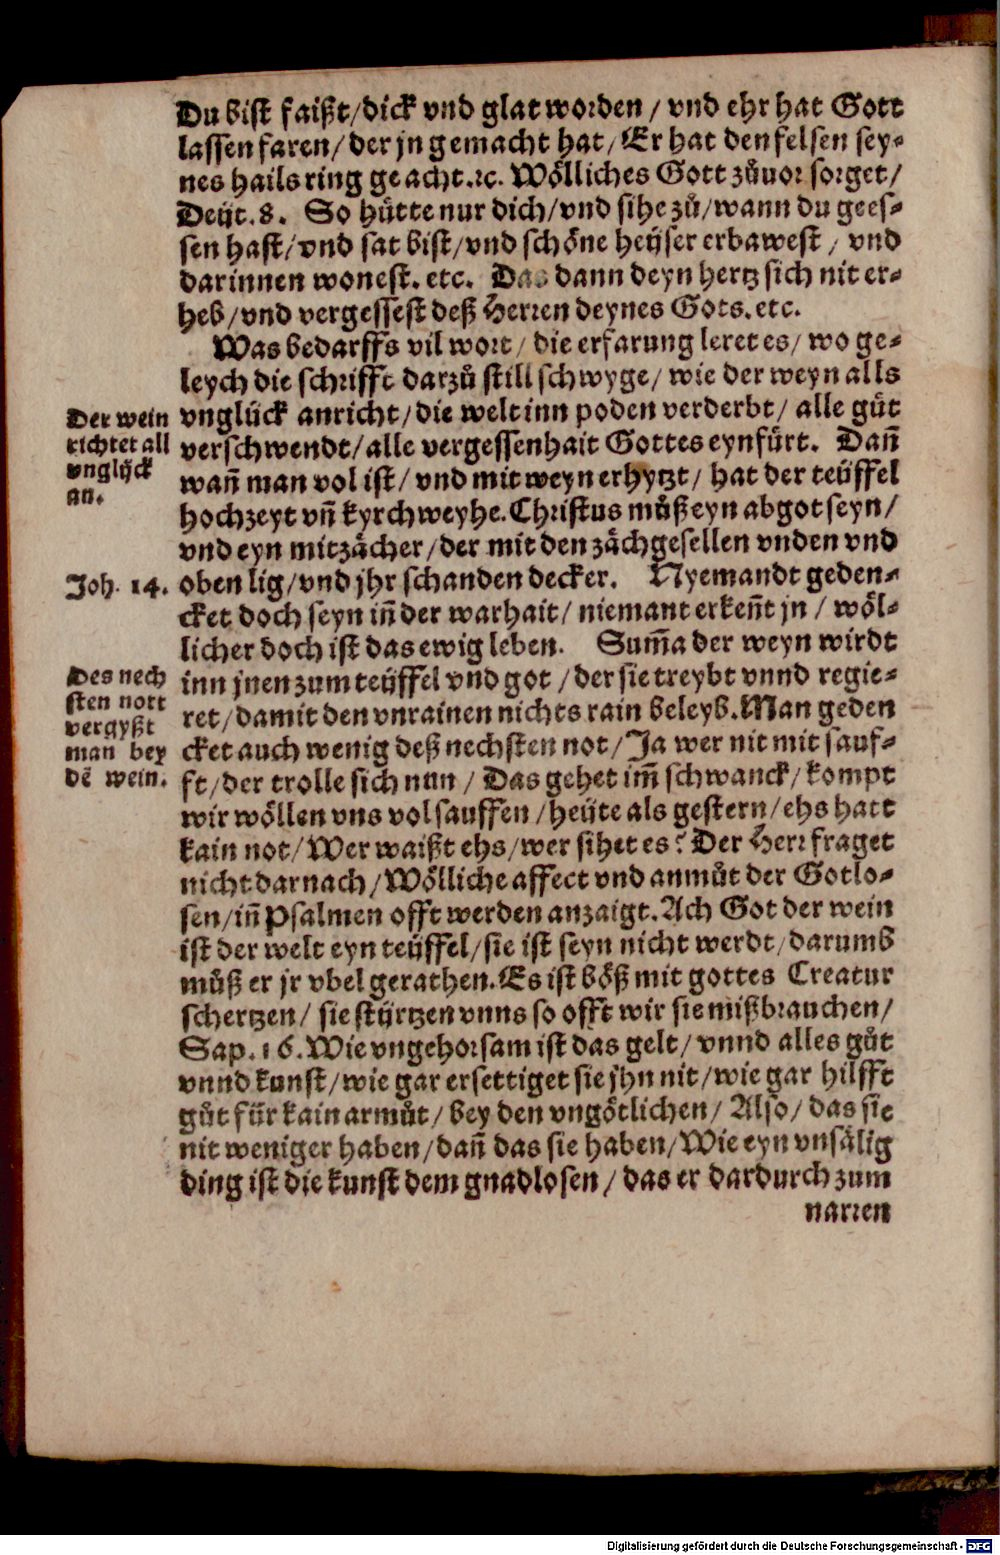 Du bist faißt/dick vnd glat worden / vnd ehr hat Gott
lassen faren/ der jn gemacht hat/ Er hat den felsen sey⸗
nes hails ring geacht.ꝛc. Wölliches Gott zůuor sorget/
Deüt. 8. So hütte nur dich/vnd sihe zů/wann du gees⸗
sen hast/vnd sat bist/vnd schöne heüser erbawest / vnd
darinnen wonest. etc. Das dann deyn hertz sich nit er⸗
heb/vnd vergessest deß Herren deynes Gots. etc.
Was bedarffs vil wort/ die erfarung leret es/ wo ge⸗
leych die schrifft darzů still schwyge/ wie der weyn alls
vnglück anricht/die welt inn poden verderbt/ alle gůt
verschwendt/alle vergessenhait Gottes eynfürt. Dañ
wañ man vol ist/ vnd mit weyn erhytzt/ hat der teüffel
hochzeyt vñ kyrchweyhe. Christus můß eyn abgot seyn/
vnd eyn mitzächer/der mit den zächgesellen vnden vnd
oben lig/vnd jhr schanden decker. Nyemandt geden⸗
cket doch seyn iñ der warhait/ niemant erkeñt jn / wöl⸗
licher doch ist das ewig leben. Sum̃a der weyn wirdt
inn jnen zum teüffel vnd got /der sie treybt vnnd regie⸗
ret/damit den vnrainen nichts rain beleyb. Man geden
cket auch wenig deß nechsten not/Ja wer nit mit sauf⸗
ft/der trolle sich nun / Das gehet im̃ schwanck/kompt
wir wöllen vns vol sauffen /heüte als gestern/ehs hatt
kain not/Wer waißt ehs/wer sihet es? Der Herr fraget
nicht darnach/Wölliche affect vnd anmůt der Gotlo⸗
sen/iñ Psalmen offt werden anzaigt. Ach Got der wein
ist der welt eyn teüffel/sie ist seyn nicht werdt/darumb
můß er jr vbel gerathen. Es ist böß mit gottes Creatur
schertzen/ sie stürtzen vnns so offt wir sie mißbrauchen/
Sap. 16. Wie vngehorsam ist das gelt/ vnnd alles gůt
vnnd kunst/wie gar ersettiget sie jhn nit/wie gar hilfft
gůt für kain armůt/ bey den vngötlichen/ Also/ das sie
nit weniger haben/dañ das sie haben/Wie eyn vnsälig
ding ist die kunst dem gnadlosen/ das er dardurch zum
narren
Der wein
richtet all
vnglück
an.
Joh. 14.
Des nech
sten nott
vergyßt
man bey
dẽ wein.
Digitalisierung gefördert durch die Deutsche Forschungsgemeinschaft - DFG